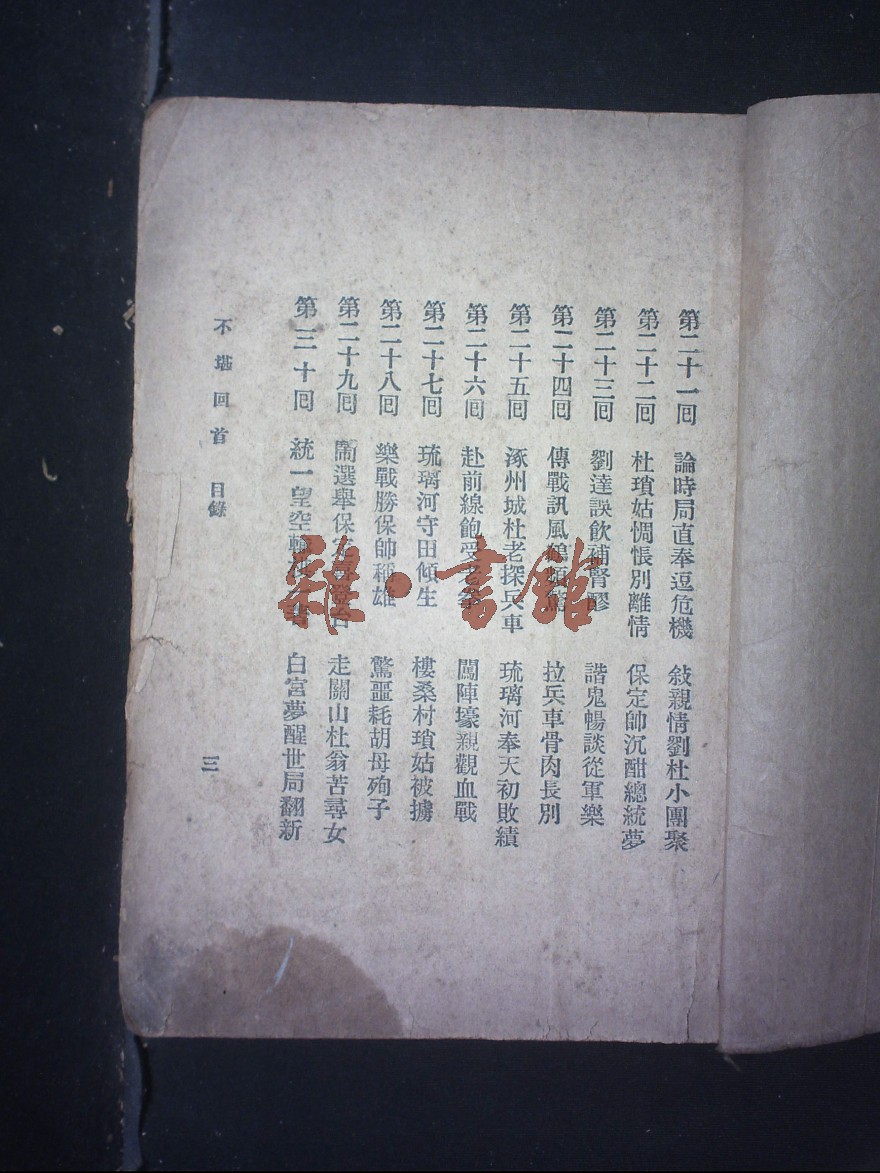 第二十一回 論時局直奉逗危機 敍親情劉杜小團聚
第二十二回 杜瑣姑惆悵別離情 保定帥沉酣總統夢
第二十三回 劉達誤飲補腎醪 諧鬼暢談從軍樂
第二十四回 傳戰訊風鶴頻驚 拉兵車骨肉長別
第二十五回 涿州城杜老探兵車 琉璃河奉天初敗績
第二十六回 赴前線飽受 闖陣壕親觀血戰
第二十七回 琉璃河守田傾生 樓桑村瑣姑被擄
第二十八回 樂戰勝保帥稱雄 驚噩耗胡母殉子
第二十九回 鬧選舉保 台 走關山杜翁苦尋女
第三十回 統一望空 書 白宮夢醒世局翻新
不堪回首 目錄
三
雜·書館